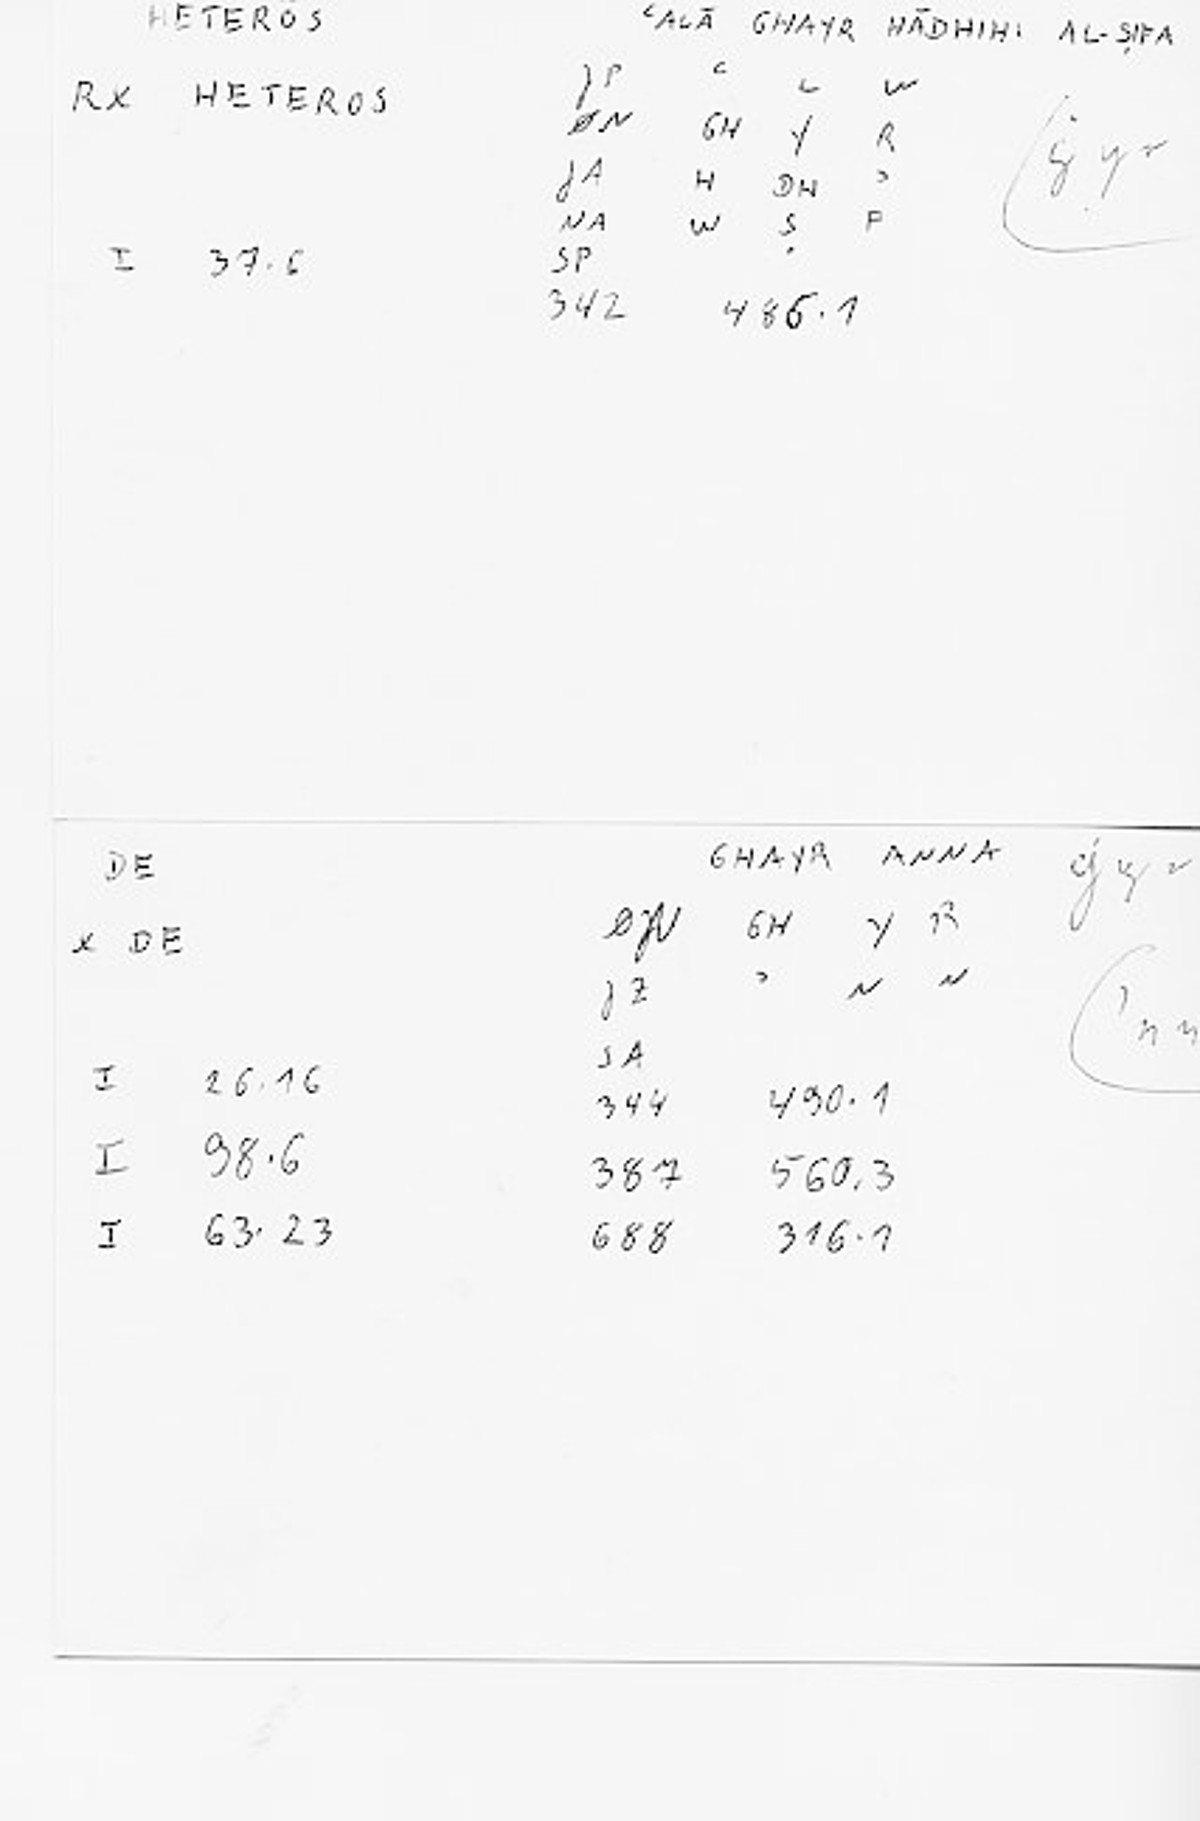 HETERŌS ʿALĀ GHAYR HĀDHIHI AL-ṢIFA
RX HETEROS JP ʿ L W
ØN GH Y R ġ y r
JA H DH ʾ
NA W Ṣ F
I 37.6 SP
342 486.1
DE GHAYR ANNA ġ y r
X DE GH Y R
JZ ʾ N N ʾ n n
SA
I 26.16 344 490.1
I 98.6 387 560.3
I 63.23 688 316.1